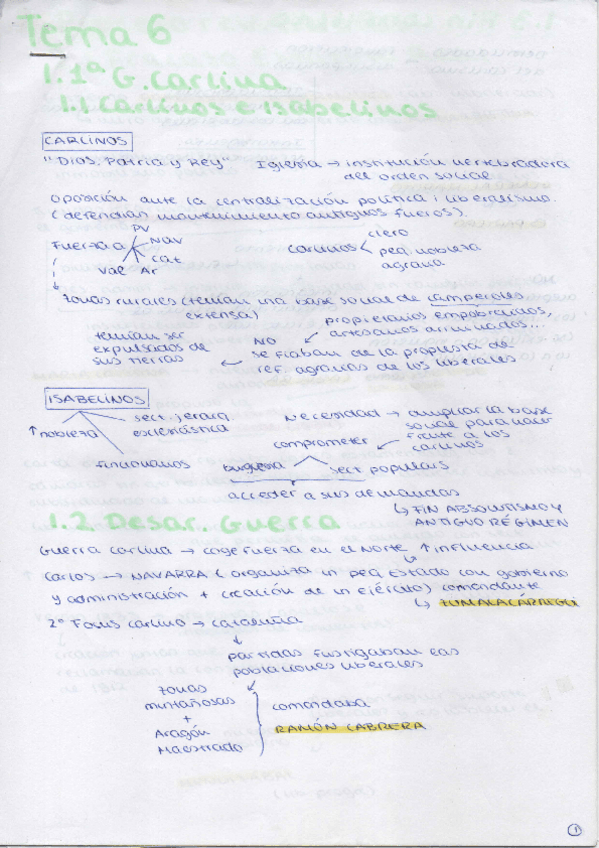 Tema 6
1. 1ª G. Carlina
1.1 Carlinos e Isabelinos
CARLINOS
"Dios, Patria y Rey" Iglesia → institución vertebradora
del orden social
Oposición ante la centralización política i liberalismo.
(defendían mantenimiento antiguos fueros).
Fuerza a PV
NAV
Cat
Ar
Val
carlinos clero
peq. nobleza
agraria
zonas rurales (tenían una base social de campesinos
extensa)
propietarios empobrecidos,
artesanos arruinados...
NO
se fiaban de la propuesta de
ref. agrarias de los liberales
temían ser
expulsados de
sus tierras
ISABELINOS
↑ nobleza
sect. jerarq.
eclesiástica
funcionarios
Necesidad → ampliar la base
social para hacer
frente a los
carlinos
comprometer
burguesía sect populares
acceder a sus demandas
↳ FIN ABSOLUTISMO Y
ANTIGUO RÉGIMEN
1.2 Desar. Guerra
Guerra carlina → coge fuerza en el Norte ↑ influencia
Carlos → NAVARRA (organiza un peq Estado con gobierno
y administración + creación de un ejército) comandante
↳ ZUMALACÁRREGUI
2º Focus carlino → cataluña
partidas fustigaban las
poblaciones liberales
zonas
muntañosas
+
Aragón
Maestrado
comandaba
RAMÓN CABRERA
1